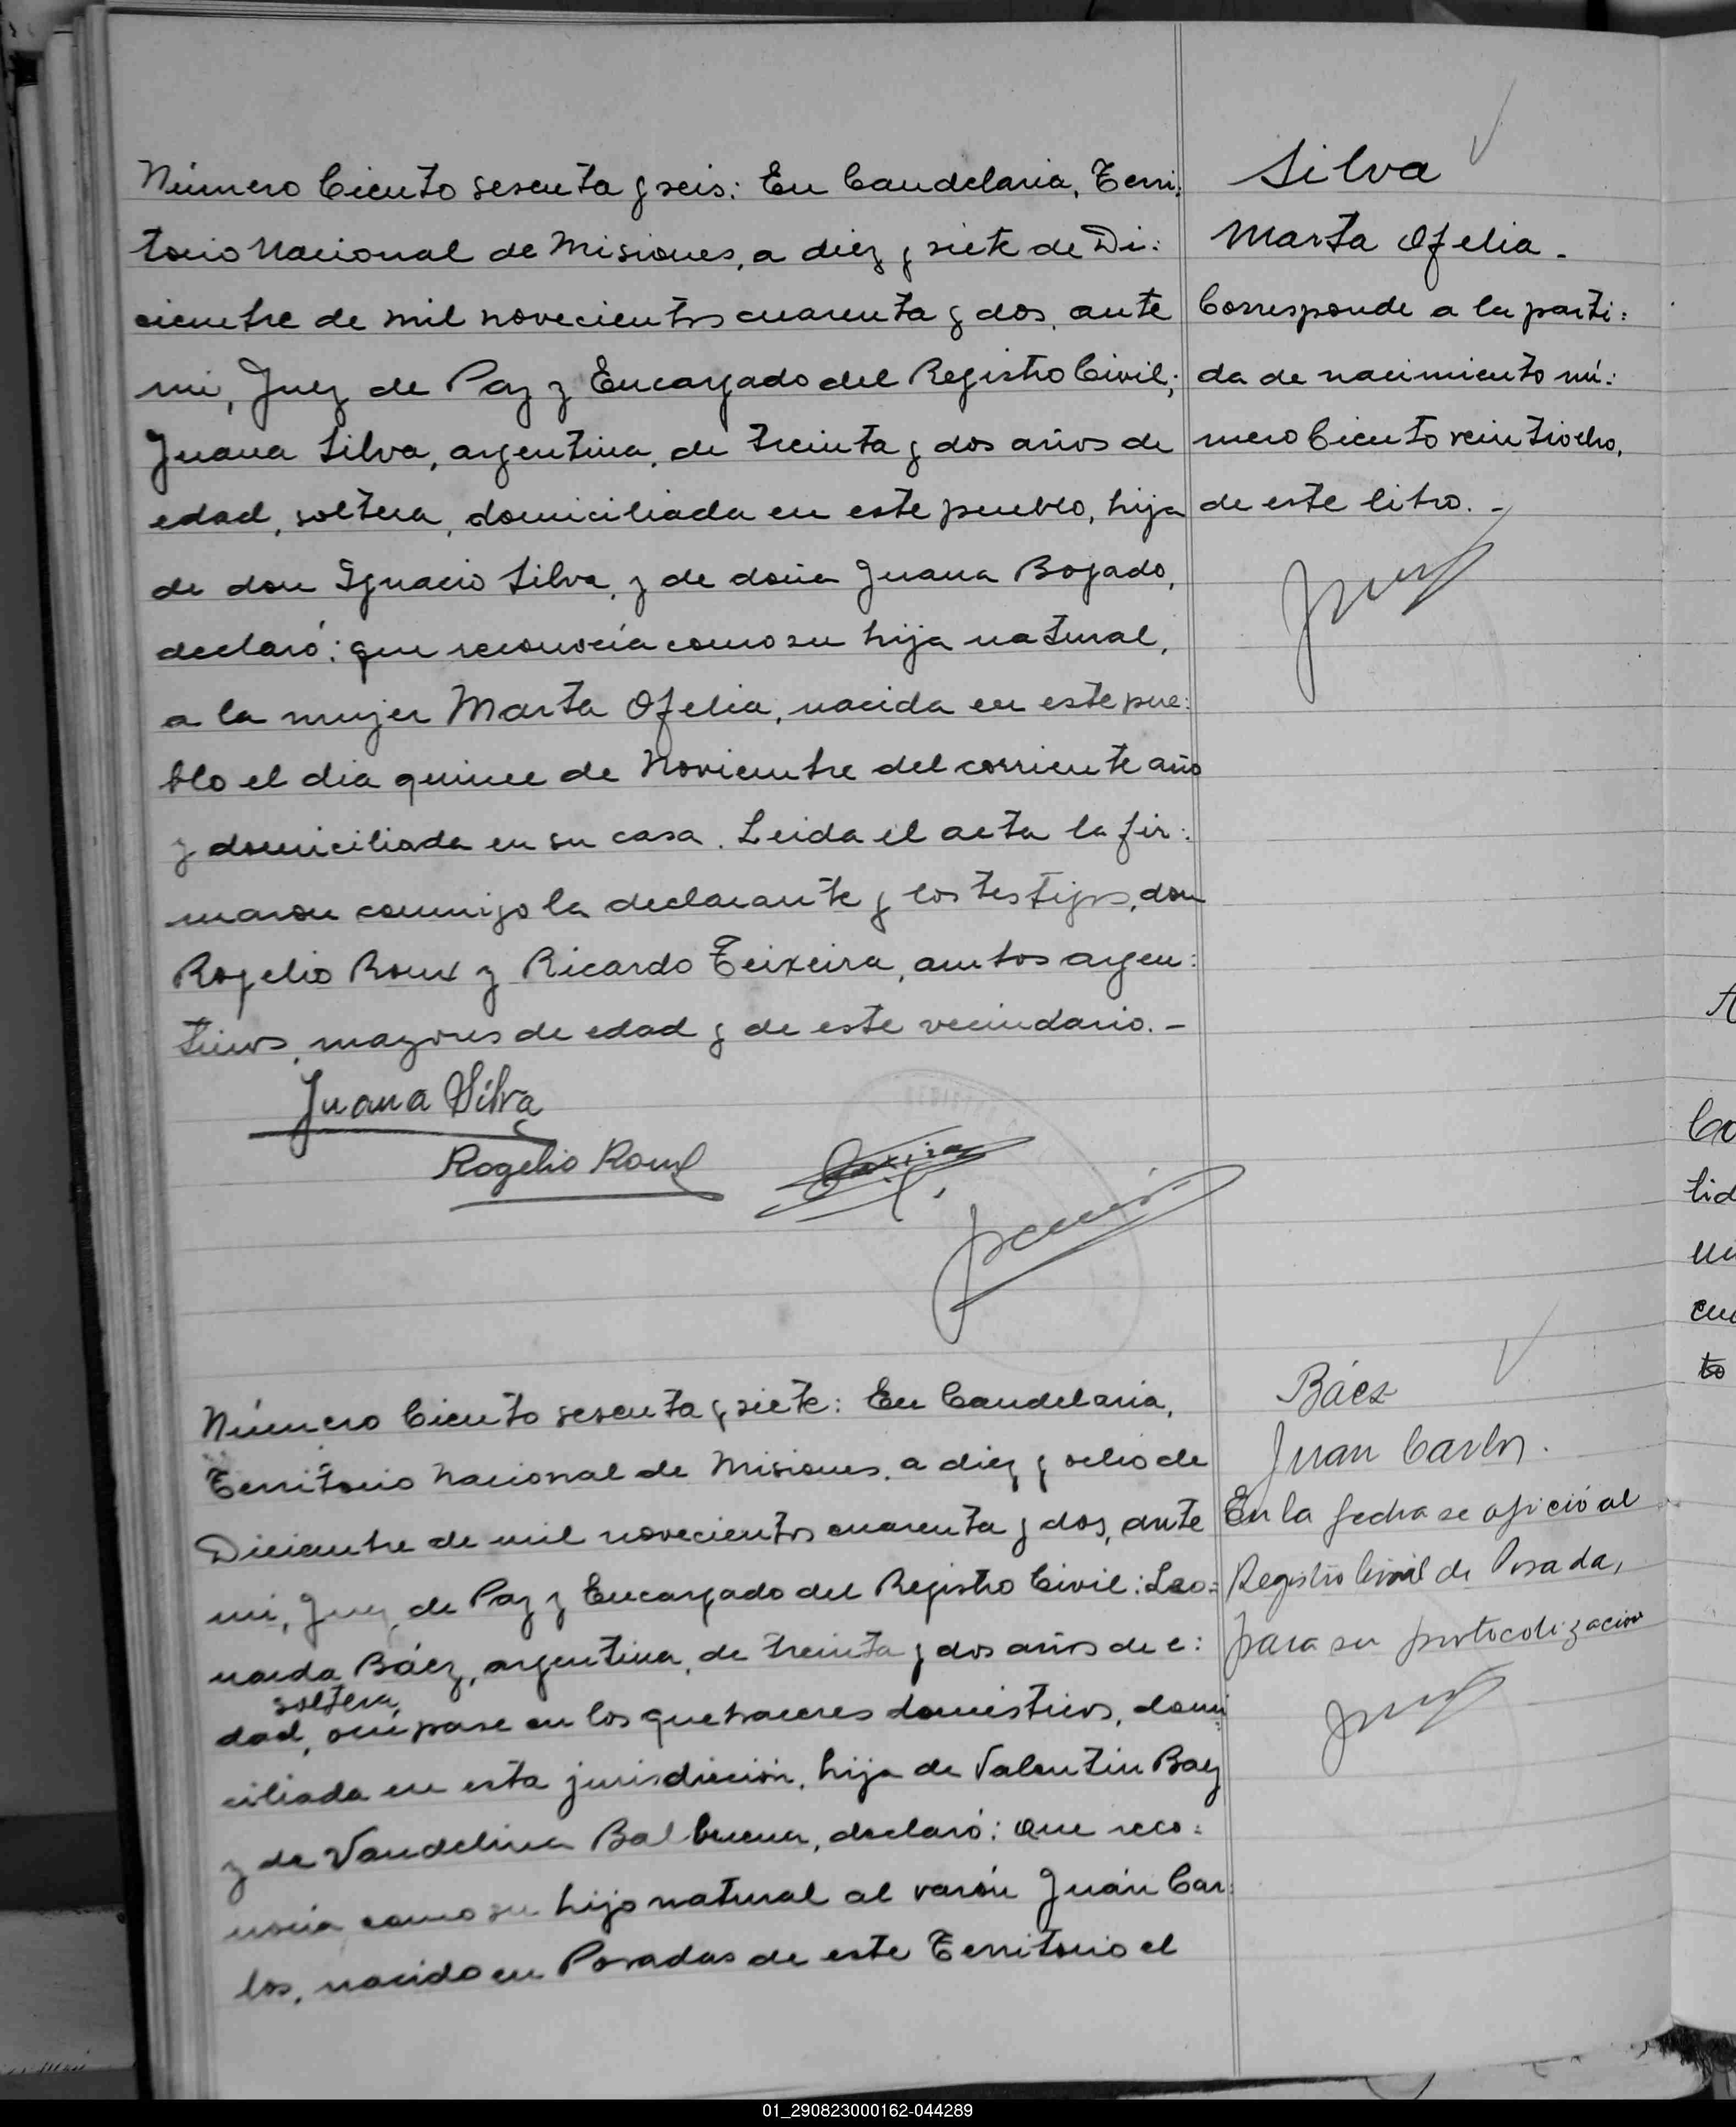 Número Ciento sesenta y seis: En Candelaria, Terri:
torio Nacional de Misiones, a diez y siete de Di:
ciembre de mil novecientos cuarenta y dos, ante
mi, Juez de Paz y Encargado del Registro Civil;
Juana Silva, argentina, de treinta y dos años de
edad, soltera, domiciliada en este pueblo, hija
de don Ignacio Silva, y de doña Juana Bogado,
declaró: que reconocía como su hija natural,
a la mujer Marta Ofelia, nacida en este pue:
blo el dia quince de Noviembre del corriente año
y domiciliada en su casa. Leida el acta la fir:
maron conmigo la declarante y los testigos, don
Rogelio Roux y Ricardo Teixeira, ambos argen:
tinos, mayores de edad y de este vecindario. -
Juana Silva
Rogelio Roux
Silva
Marta Ofelia -
Corresponde a la parti:
da de nacimiento nú:
mero Ciento veintiocho,
de este libro. -
Número Ciento sesenta y siete: En Candelaria,
Territorio Nacional de Misiones, a diez y ocho de
Diciembre de mil novecientos cuarenta y dos, ante
mi, Juez de Paz y Encargado del Registro Civil: Leo=
narda Báez, argentina, de treinta y dos años de e:
soltera,
dad, ocupase en los quehaceres domésticos, domi:
ciliada en esta jurisdicción, hija de Valentin Baez
y de Vandelina Balbuena, declaró: Que reco:
nocía como su hijo natural al varón Juán Car:
los, nacido en Posadas de este Territorio el
Báez
Juan Carlos.
En la fecha se ofició al
Registro Civil de Posada,
para su protocolización
Co
lid
cu
to
01_290823000162-044289